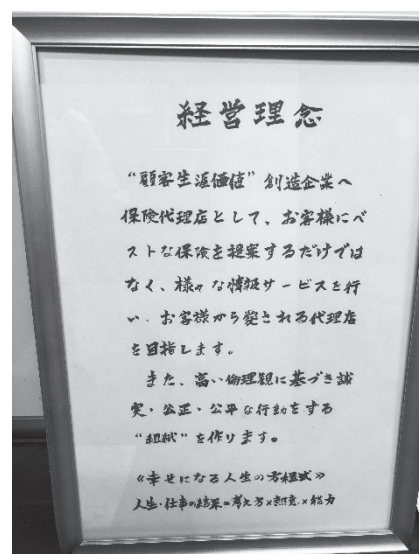 経営理念
“顧客生涯価値”創造企業へ
保険代理店として、お客様にベ
ストな保険を提案するだけでは
なく、様々な情報サービスを行
い、お客様から愛される代理店
を目指します。
また、高い倫理観に基づき誠
実・公正・公平な行動をする
“組織”を作ります。
≪幸せになる人生の方程式≫
人生・仕事の結果=考え方×熱意×能力